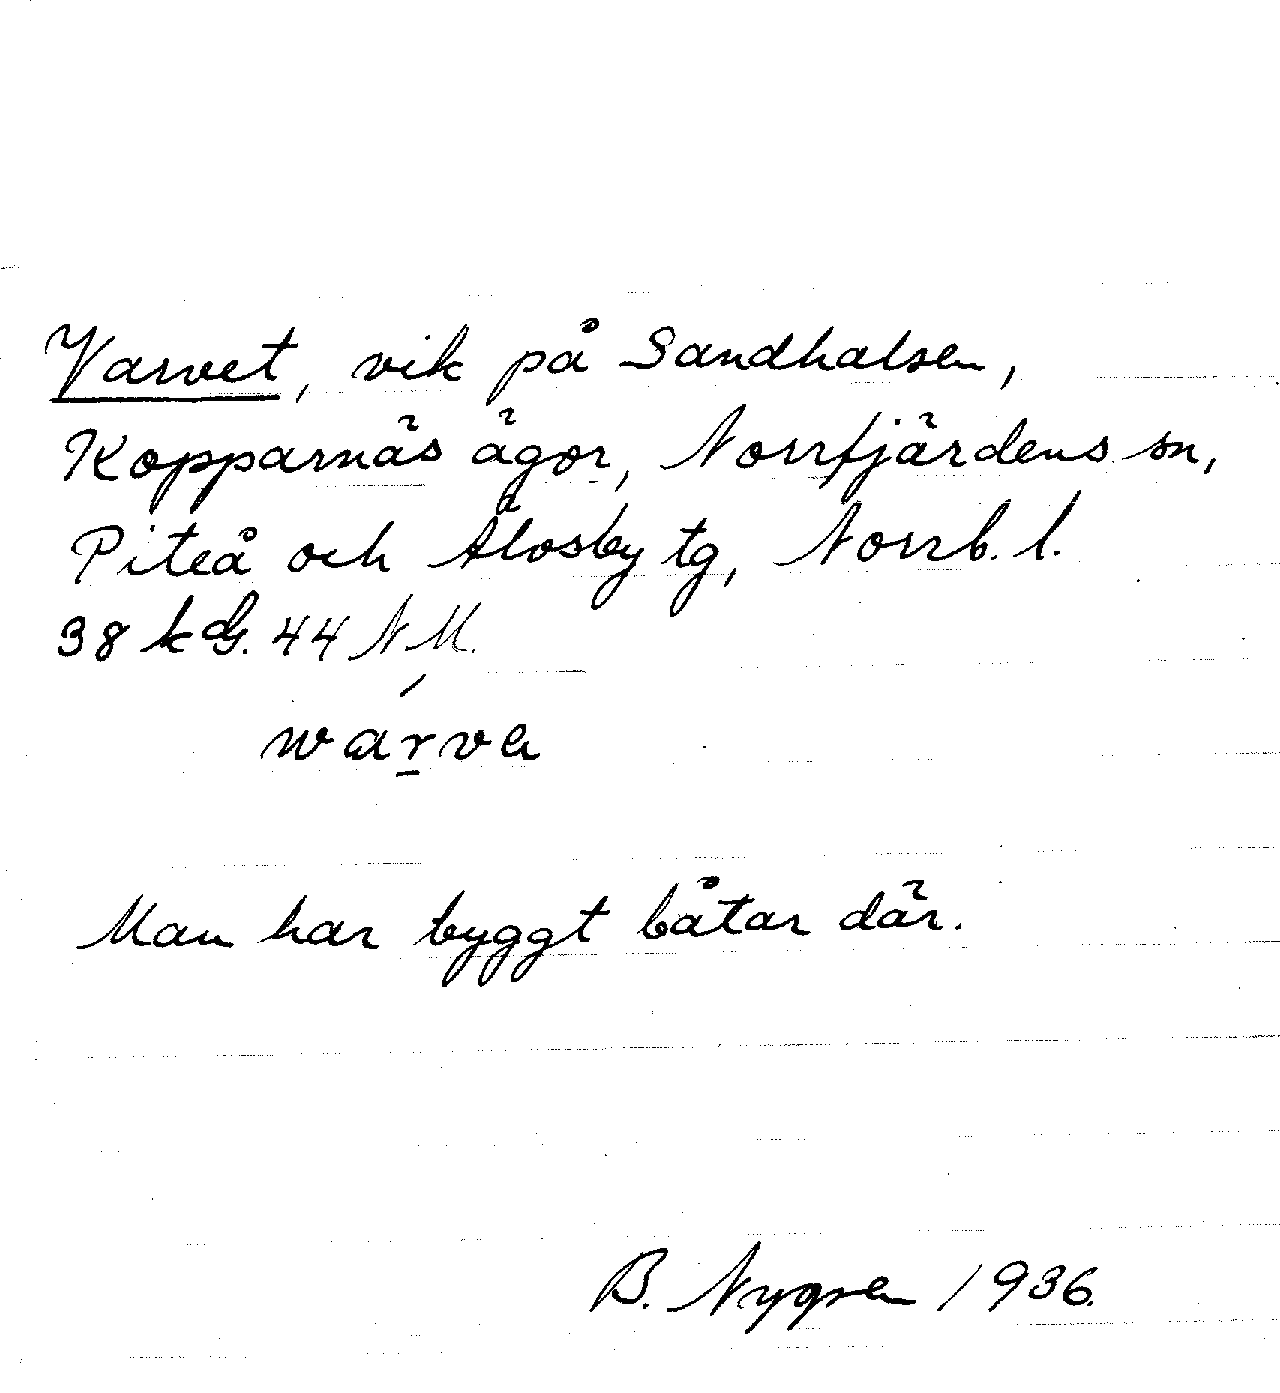 Varvet, vik på Sandhalsen,
Kopparnäs ägor, Norrfjärdens sn,
Piteå och Älvsby tg, Norrb. l.
38 k dG. 44 NM.
warva
Man har byggt båtar där.
B. Nygren 1936.